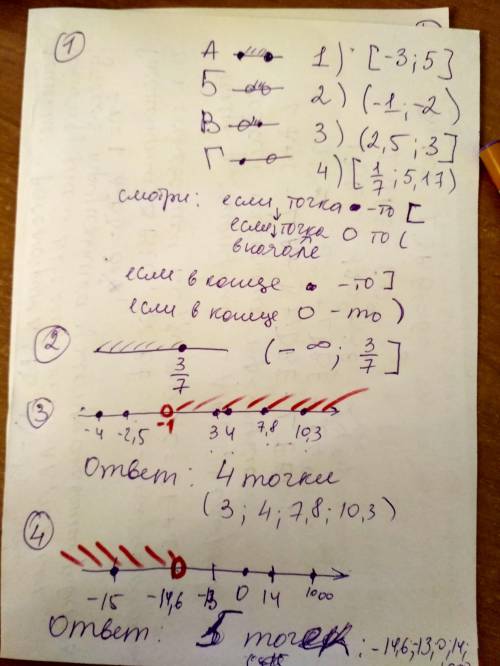 1
А 1) [-3;5]
Б 2) (-1;-2)
В 3) (2,5;3]
Г 4) [1/7;5,17)
смотри: если точка • -то [
если точка О то (
вначале
если в конце • -то ]
если в конце О - то )
2
3/7 (-∞; 3/7]
3
-4 -2,5 -1 3 4 7,8 10,3
Ответ: 4 точки
(3; 4; 7,8; 10,3)
4
-15 -14,6 -13 0 14 1000
Ответ: 5 точек : -14,6;-13;0;14;